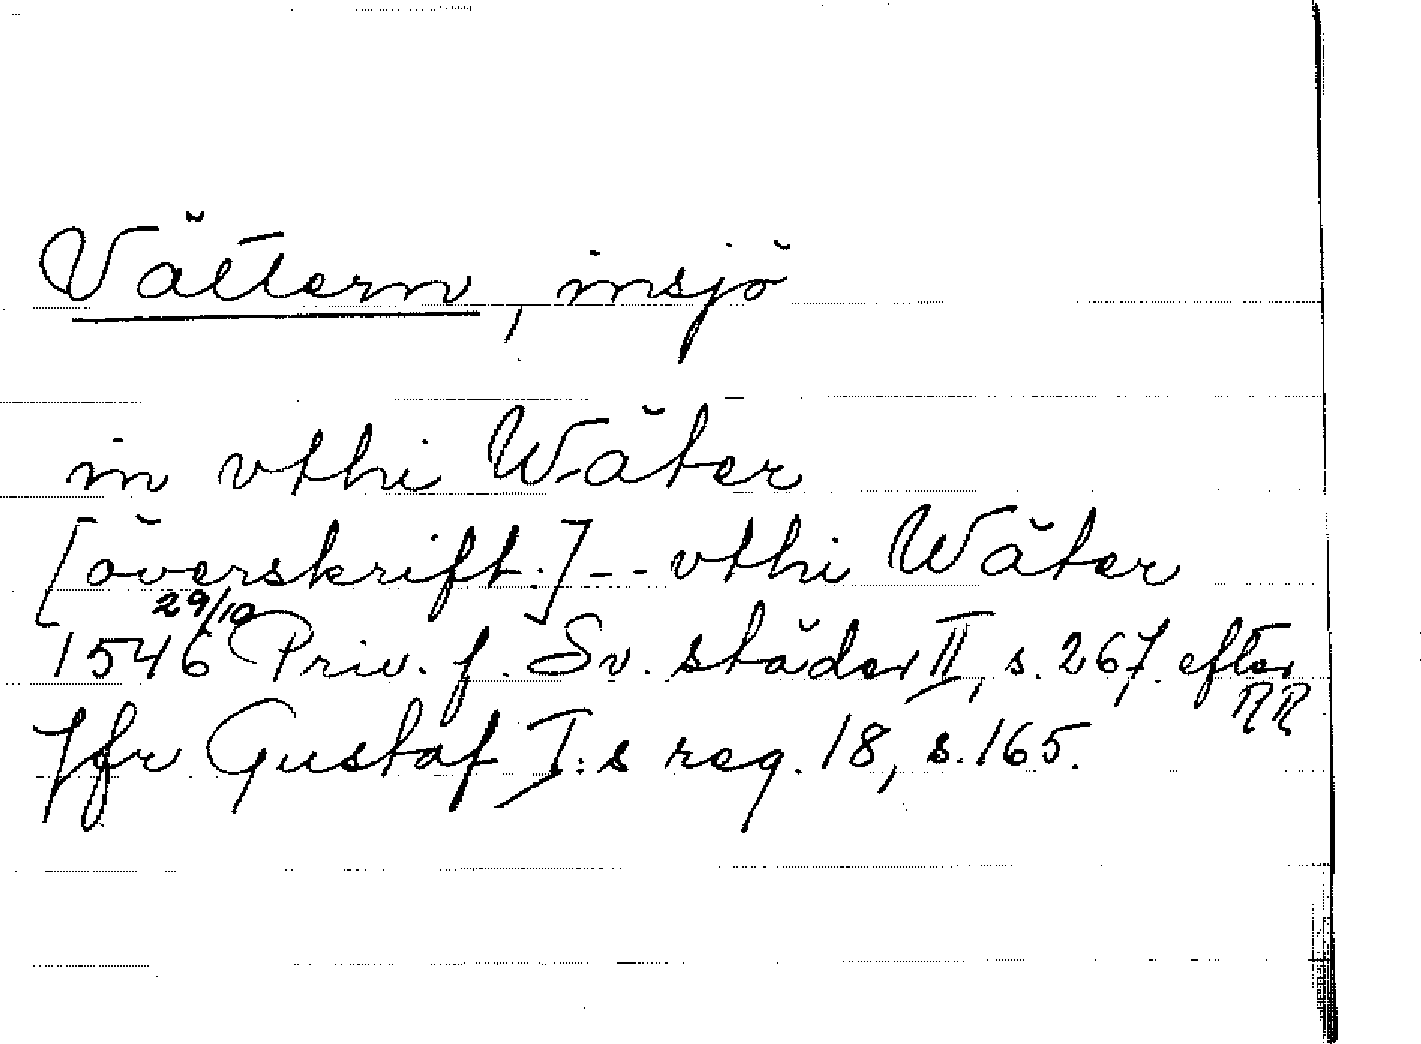 Vättern, insjö
in vthi Wäter
[överskrift.] -- vthi Wäter
29/10
1546 Priv. f. Sv. städer II, s. 267 efter
RR
Jfr Gustaf I:s reg. 18, s. 165.